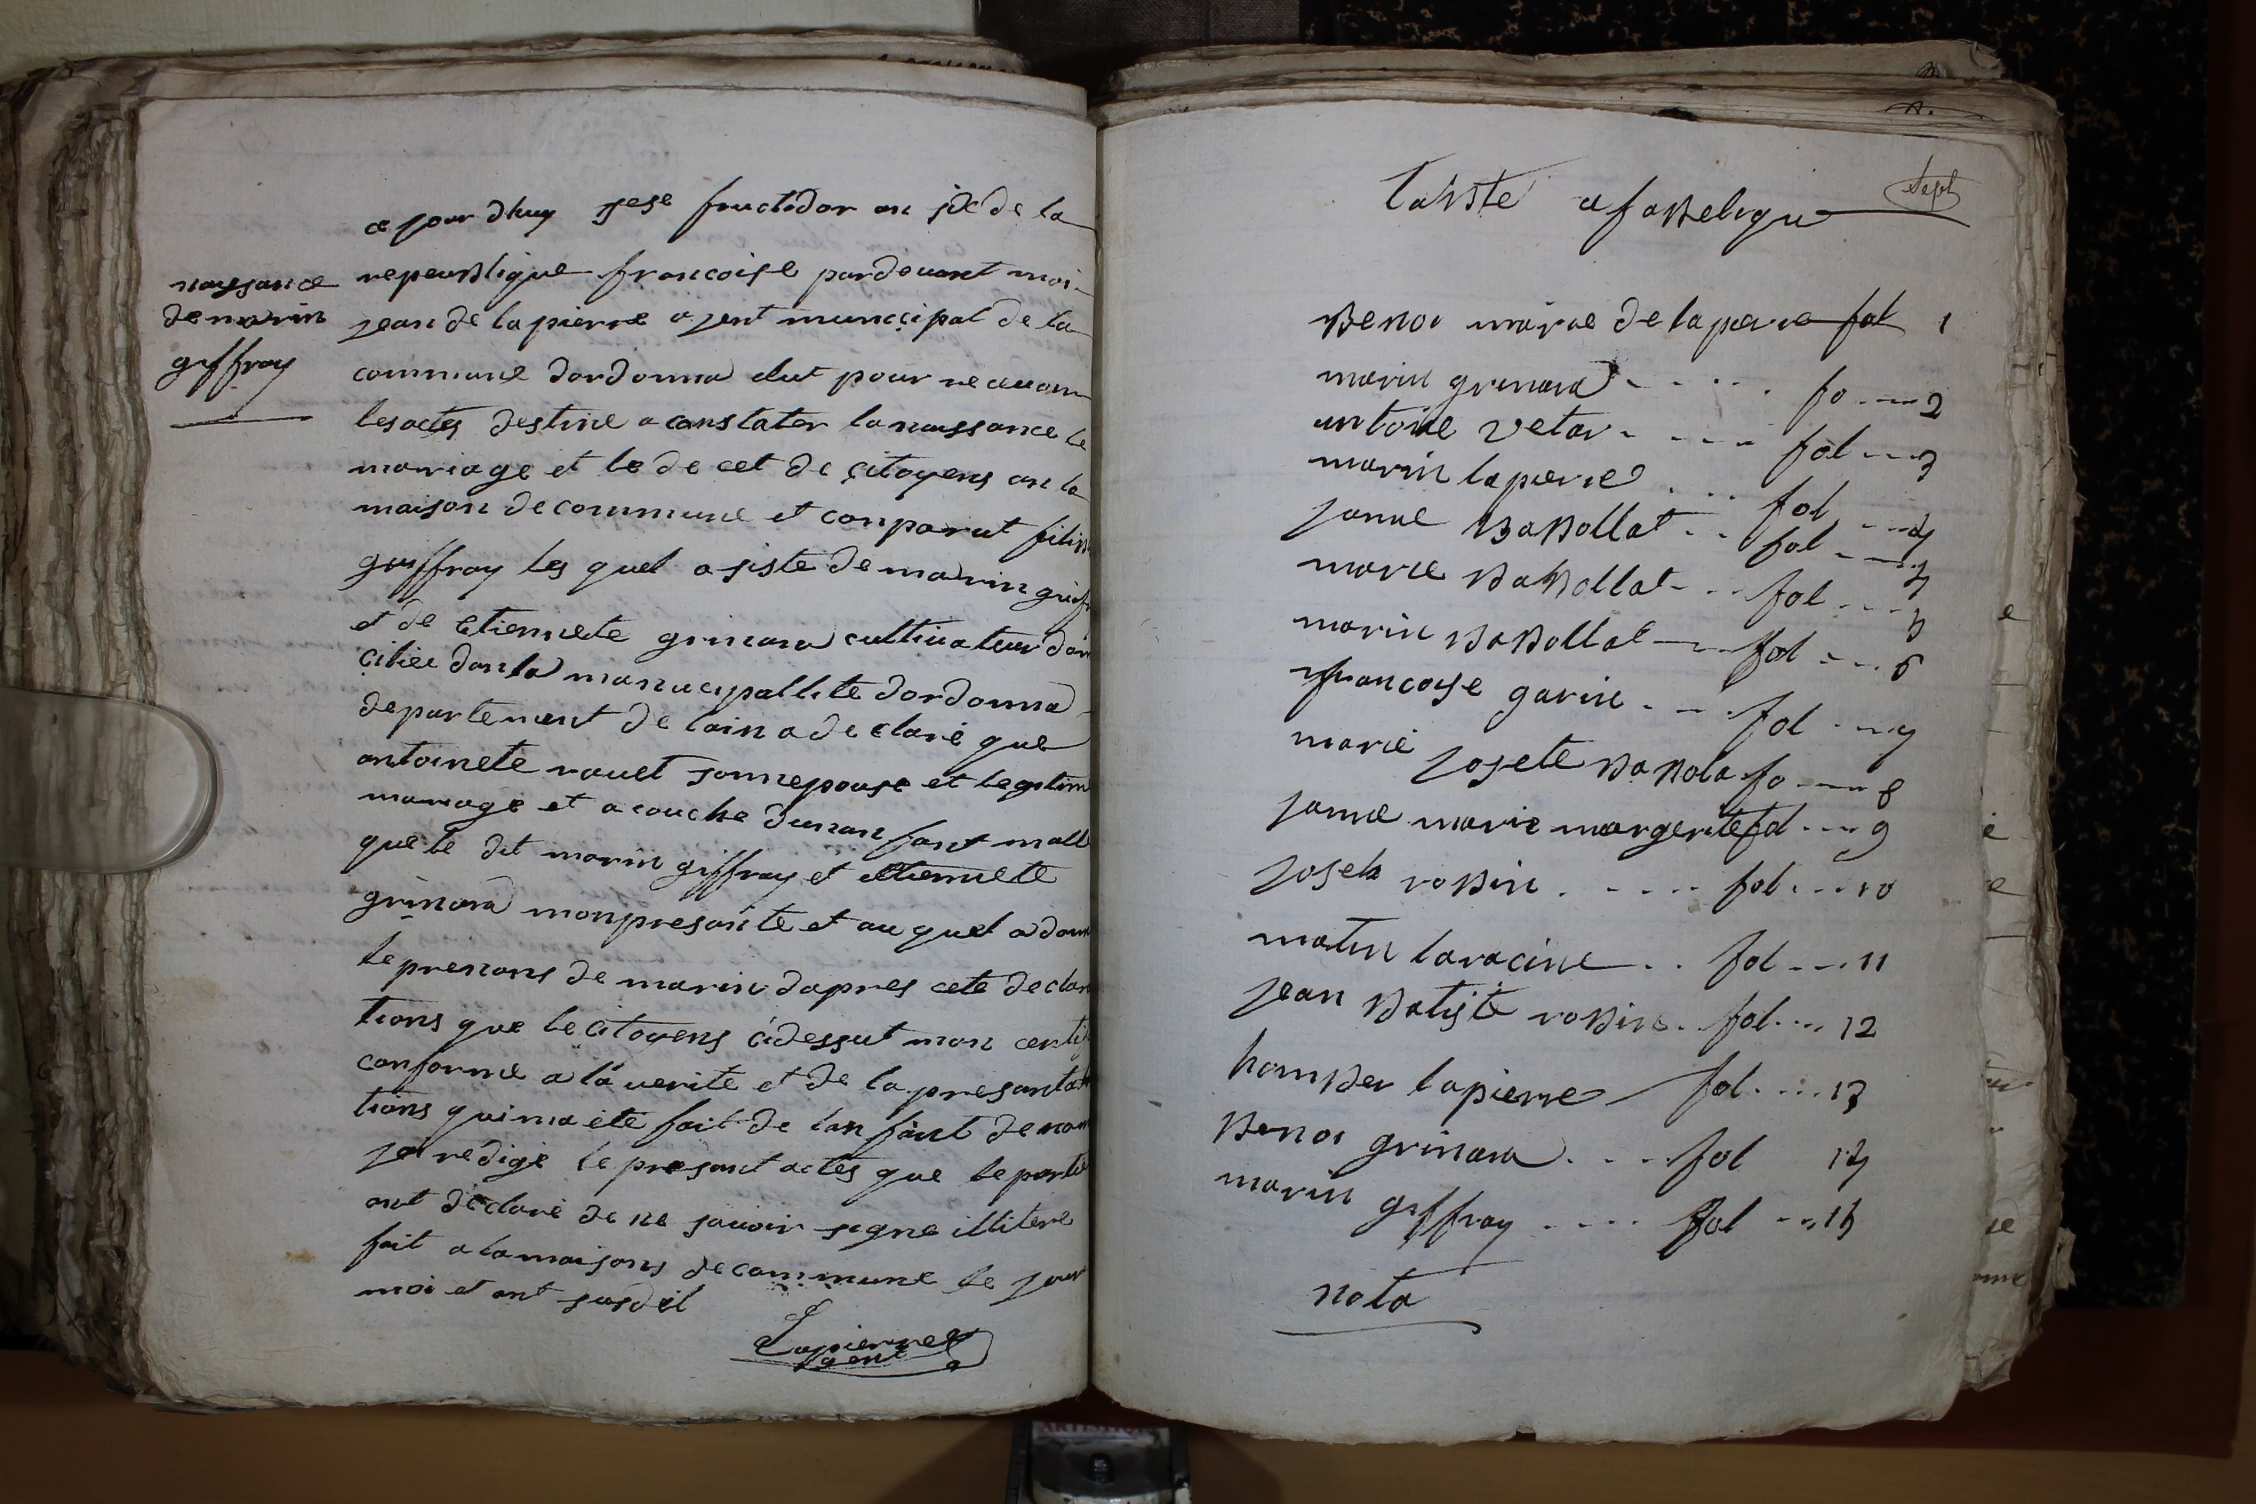 naissance
de marin
giffray
ce jour dhuy fructidor an de la
repeublique francoise pardevant moi
jean de lapierre ajent municipal de la
commune dordonna elut pour recevoir
les actes destine a constater la naissance le
mariage et le de cet de citoyens an la
maison de commune et conparut
guiffray les quel asiste de marin
et de etiennete grinana cultivateur
cilier dan la manucipallite dordonna
departement de lain a declare que
antoinete sonnepouse et legitim
mariage et a couche dunan fant malle
que le dit marin giffray et ettiennete
grinana monpresante et au quel a donn
le prenons de marin dapres cete declara
tions que le citoyens cidessut mon certif
conforme a la verite et de la presanta
tions qui ma ete fait de lan fant denom
je redige le presant actes que le partie
ont declare de ne savoir signe illitere
fait a la maisons de commune le jour
moi et ant susdit
Lapierre
agent
Sept
laiste alfabetique
Benoi marie de la pierre fol 1
marin grinand fo 2
antoine vetar fol 3
marin lapierre fol 4
janne Babollat fol 4
marie Babollat fol 5
marin Babollat fol 6
francoise garin fol 7
marie josete Babola fo 8
janne marie margerite fol 9
joseh robin fol 10
matin laracine fol 11
jean Batiste robin fol 12
hamber lapierre fol 13
Benoi grinana fol 14
marin giffray fol 15
nota